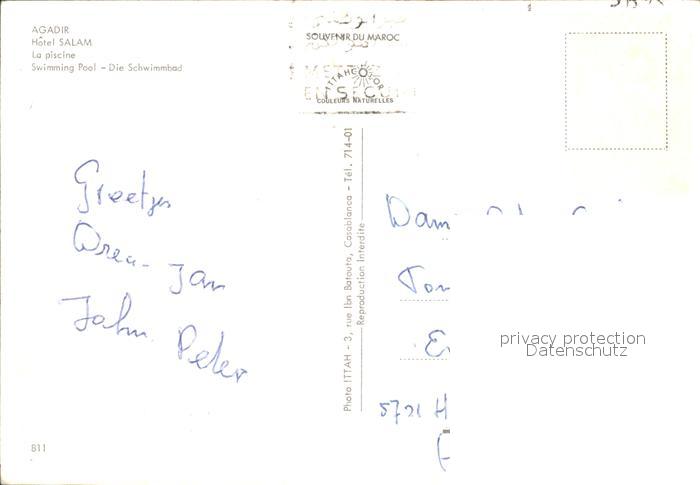 AGADIR
Hôtel SALAM
La piscine
Swimming Pool - Die Schwimmbad
SOUVENIR DU MAROC
ITTAHCOLOR
EN SECU
COULEURS NATURELLES
Greetjes
Jan
John Peter
Photo ITTAH - 3, rue Ibn Batouta, Casablanca - Tél. 714-01
Reproduction Interdite
Dam
Ton
E
5721 H
privacy protection
Datenschutz
811